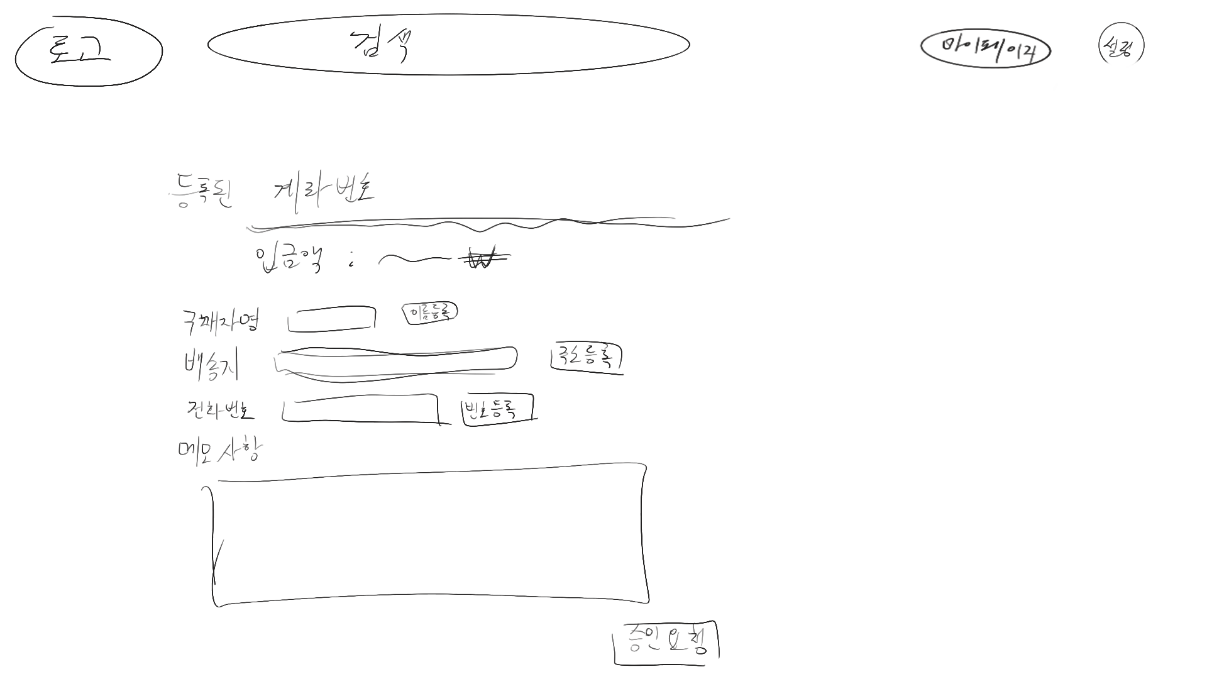 로고 검색 마이페이지 설정
등록된 계좌번호
입금액 : ₩
구매자명 이름등록
배송지 주소등록
전화번호 번호등록
메모사항
승인요청